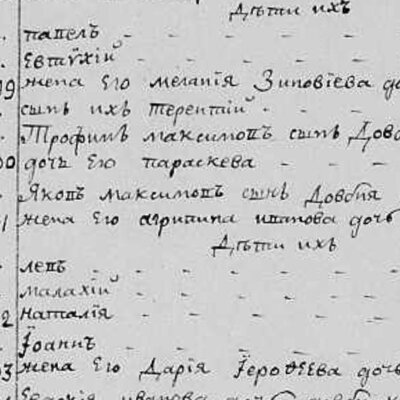 Дѣти ихъ
павелъ
Евтихїй
9 жена Его мелания Зиновїева до
сынъ ихъ терентїй
Трофимъ максимовъ сынъ Довб
0 дочь Его параскева
Яковъ максимовъ сынъ Довбня
1 жена Его агрипина иванова дочь
Дѣти ихъ
левъ
малахїй
2 наталїя
Їоаннъ
3 жена Его Дарїя Їерофѣева дочь